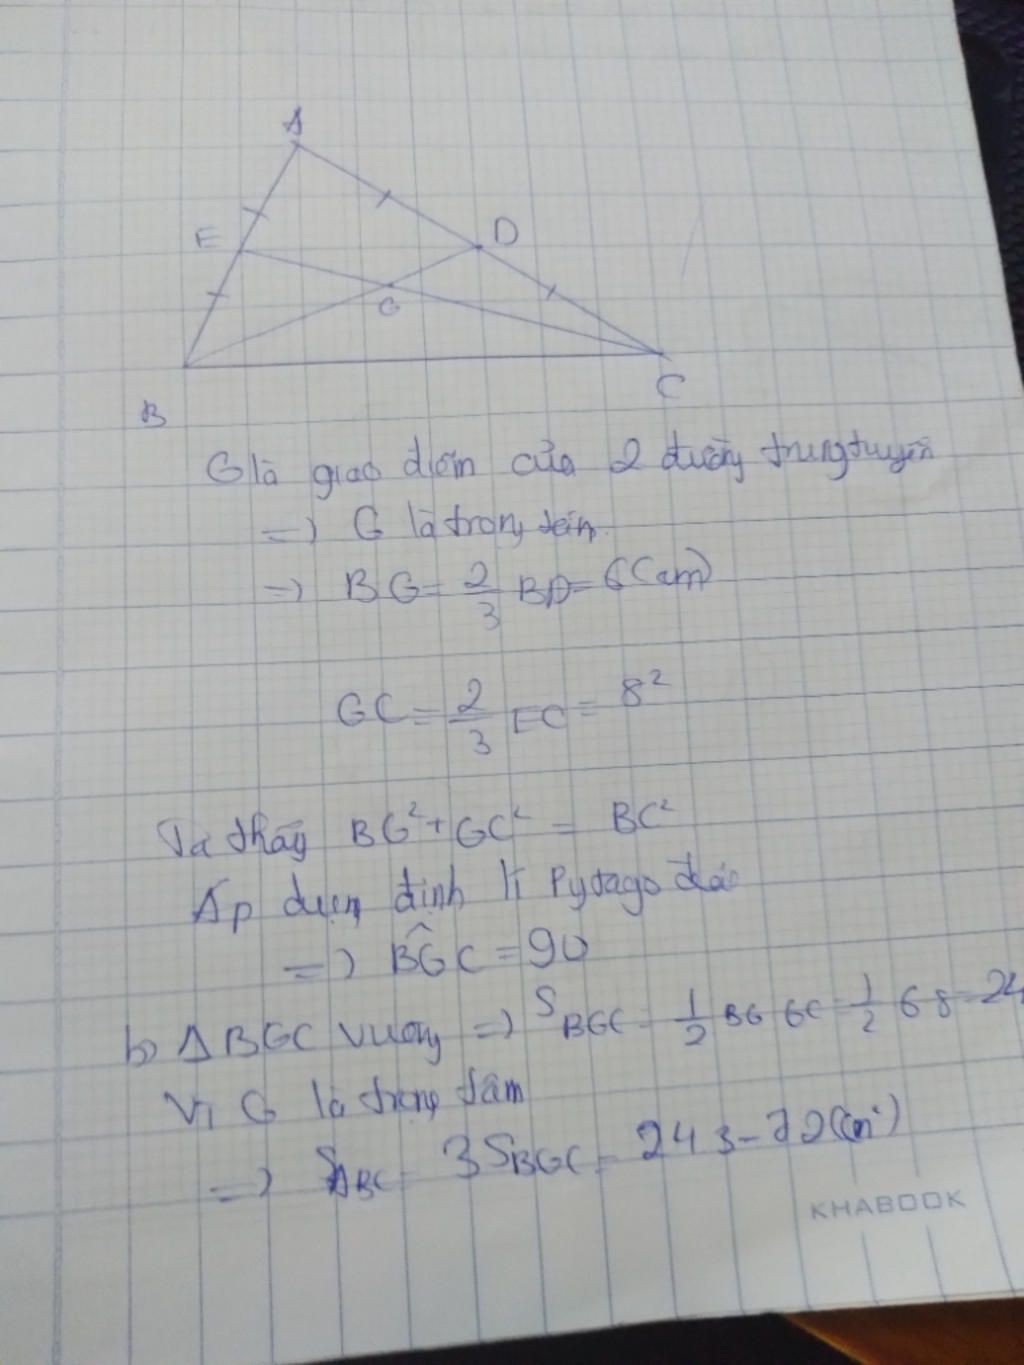 A
E
D
G
B
C
G là giao điểm của 2 đường trung tuyến
=) G là trọng tâm.
=) BG = 2/3 BD = 6 (cm)
GC = 2/3 EC = 8²
Ta thấy BG² + GC² = BC²
Áp dụng định lí Pytago đảo
=) BĜC = 90
b) Δ BGC vuông =) S BGC = 1/2 BG GC = 1/2 6 8 = 24
Vì G là trọng tâm
=) S ABC = 3 S BGC = 24 3 = 72 (cm²)
KHABOOK